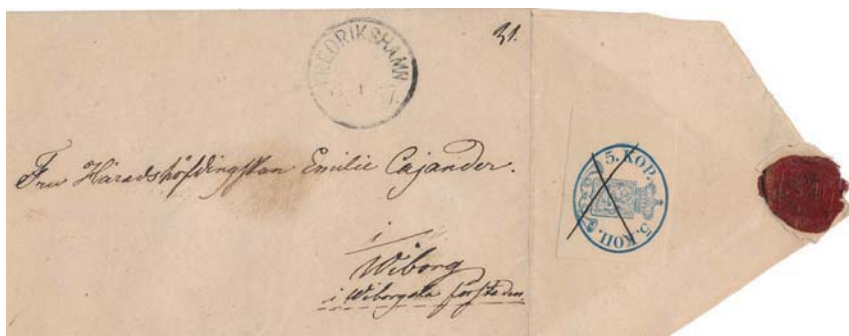 31.
FREDRIKSHAMN
Fru Häradshöfdingskan Emilie Cajander.
i
Wiborg
i Wiborgska förstaden.
5. KOP.
5. КОП.